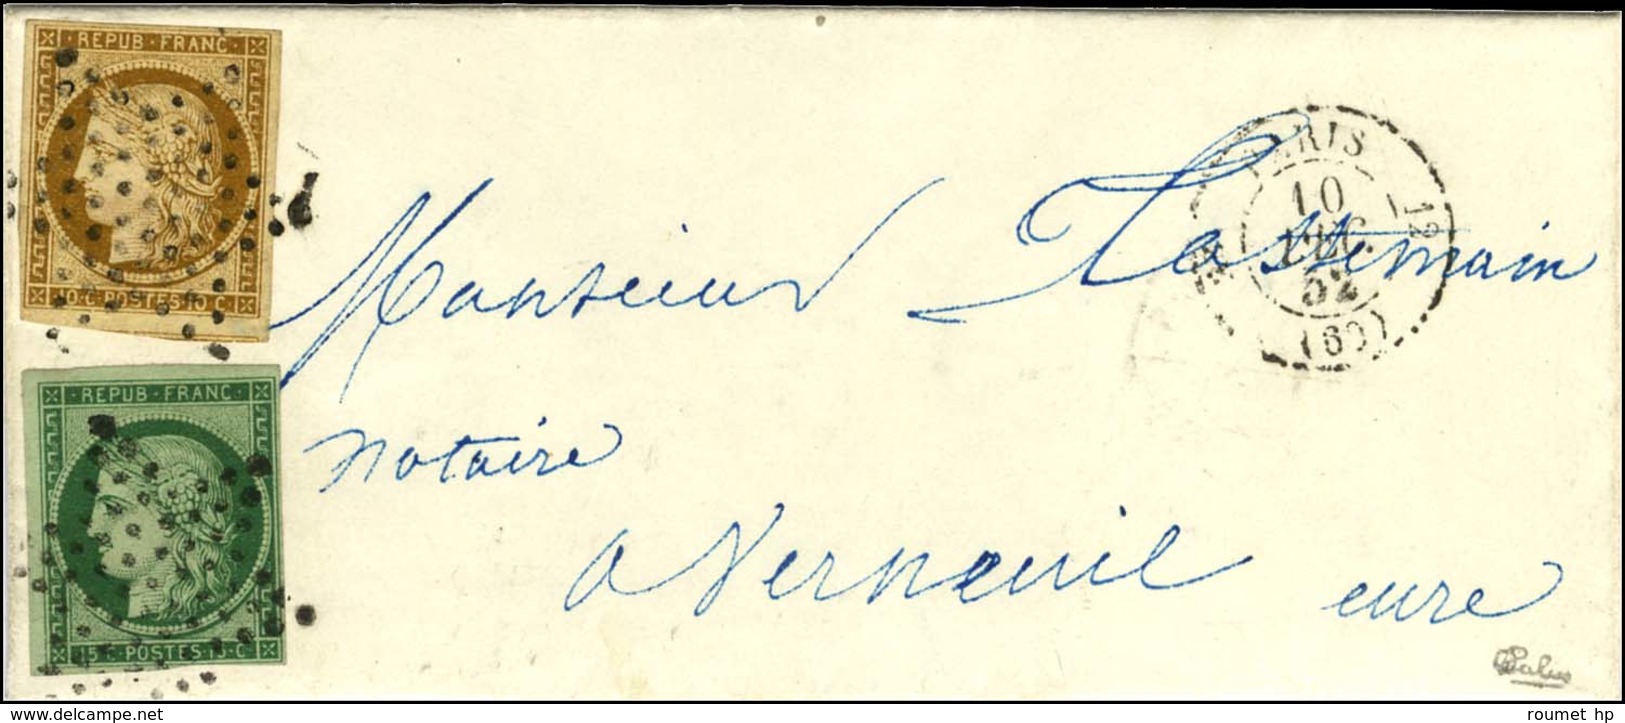 REPUB·FRANC·
10·C·POSTES·10·C
REPUB·FRANC·
15·C·POSTES·15·C
PARIS
10
DEC.
52
(60)
12
Monsieur
notaire
a Verneuil eure
Calves
www.delcampe.net
roumet hp